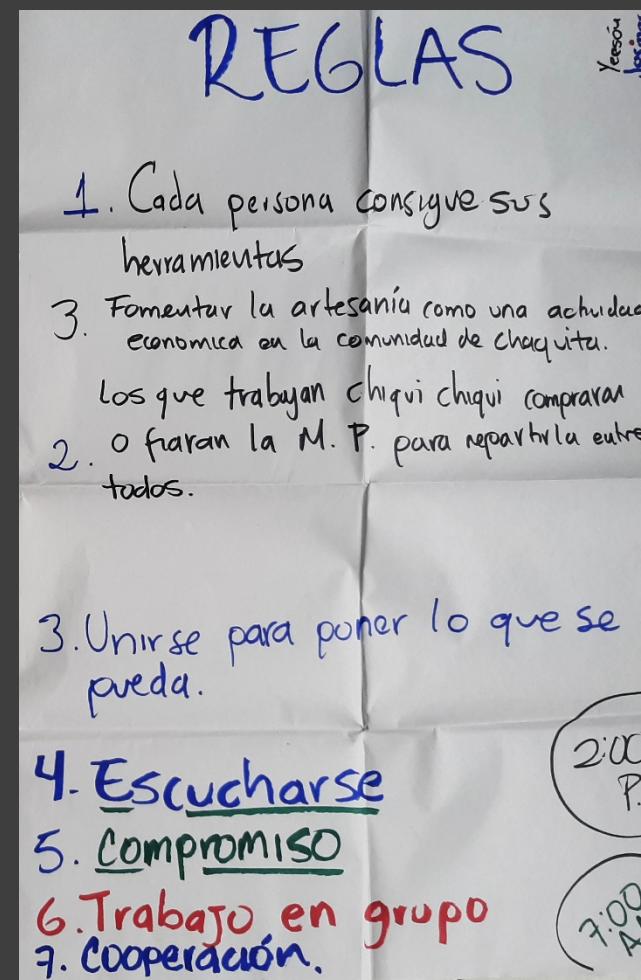 REGLAS
Yeesón
1. Cada persona consigue sus
herramientas
3. Fomentar la artesanía como una actividad
economica en la comunidad de chaquita.
Los que trabajan chiqui chiqui compraran
2. o fiaran la M. P. para repartirla entre
todos.
3. Unirse para poner lo que se
pueda.
2:00
P
4. Escucharse
5. Compromiso
6. Trabajo en grupo
7:00
A
7. Cooperación.